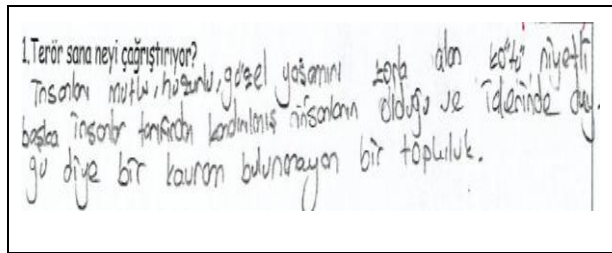 1.Terör sana neyi çağrıştırıyor?
İnsanları mutlu, huzurlu, güzel yaşamını zorla alan kötü niyetli
başka insanlar tarafından kandırılmış insanların olduğu ve içlerinde duy-
gu diye bir kavram bulunmayan bir topluluk.